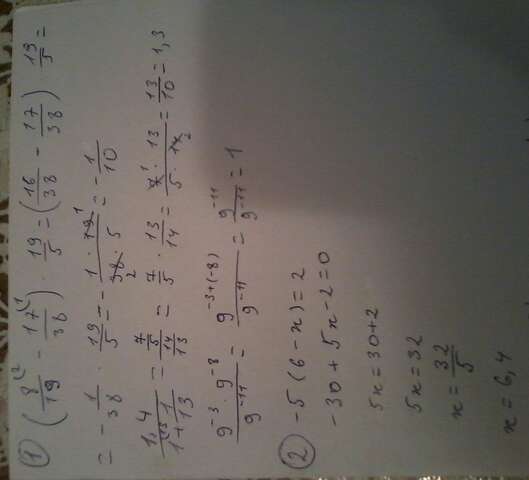 ① (8/19 ⁽² - 17/38 ⁽¹) · 19/5 = (16/38 - 17/38) 19/5 =
= -1/38 · 19/5 = - (1 · 19 ¹)/(38 ₂ · 5) = - 1/10
1,4/(1 ⁽¹³ + 1/13) = (7/5)/(14/13) = 7/5 · 13/14 = (7 ¹ · 13)/(5 · 14 ₂) = 13/10 = 1,3
(9⁻³ · 9⁻⁸)/9⁻¹¹ = 9⁻³⁺⁽⁻⁸⁾/9⁻¹¹ = 9⁻¹¹/9⁻¹¹ = 1
② -5(6-x)=2
-30+5x-2=0
5x=30+2
5x=32
x=32/5
x=6,4